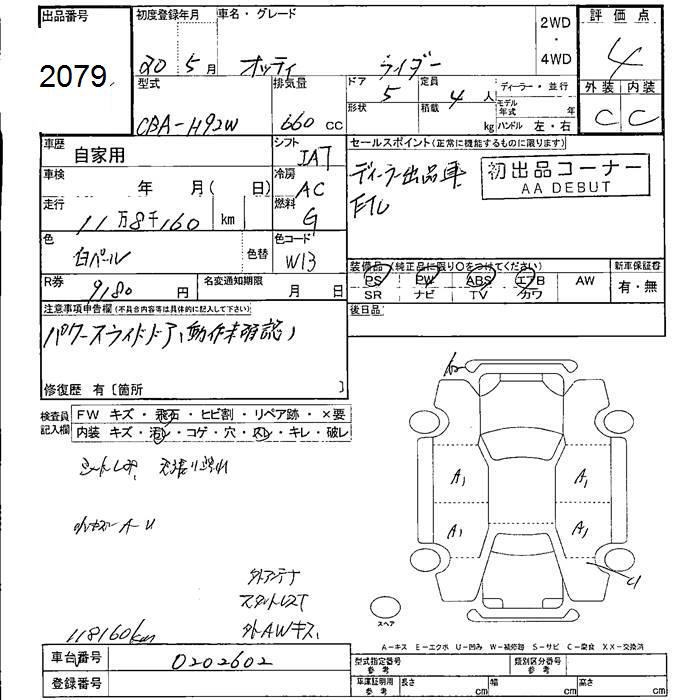 出品番号
2079
初度登録年月
20年 5月
車名・グレード
オッティ ライダー
2WD
・
4WD
評価点
4
外装 内装
C C
型式
CBA-H92W
排気量
660 CC
ドア 5
定員 4人
形状
積載 kg
ディーラー・並行
モデル年式 年
ハンドル 左・右
車歴 自家用
シフト IAT
車検 年 月( 日)
冷房 AC
走行 11万8千160 km
燃料 G
色 白パール
色替
色コード W13
R券 9180 円
名変通知期限 月 日
セールスポイント(正常に機能するものに限ります)
ディーラー出品車
ETC
初出品コーナー
AA DEBUT
装備品(純正品に限り○をつけてください)
PS PW ABS エアB AW
SR ナビ TV カワ
新車保証書
有・無
後日品
注意事項申告欄(不具合内容等は具体的に記入して下さい)
パワースライドドア(動作未確認)
修復歴 有[箇所 ]
検査員
記入欄
FW キズ・飛石・ヒビ割・リペア跡・×要
内装 キズ・汚レ・コゲ・穴・スレ・キレ・破レ
A-U
外アンテナ
外AWキズ
118160km
A1 A1
A1 A1
スペア
A-キズ E-エクボ U-凹み W-補修跡 S-サビ C-腐食 XX-交換済
車台番号 0202602
登録番号
型式指定番号
参考
類別区分番号
参考
車庫証明用
参考
長さ cm
幅 cm
高さ cm